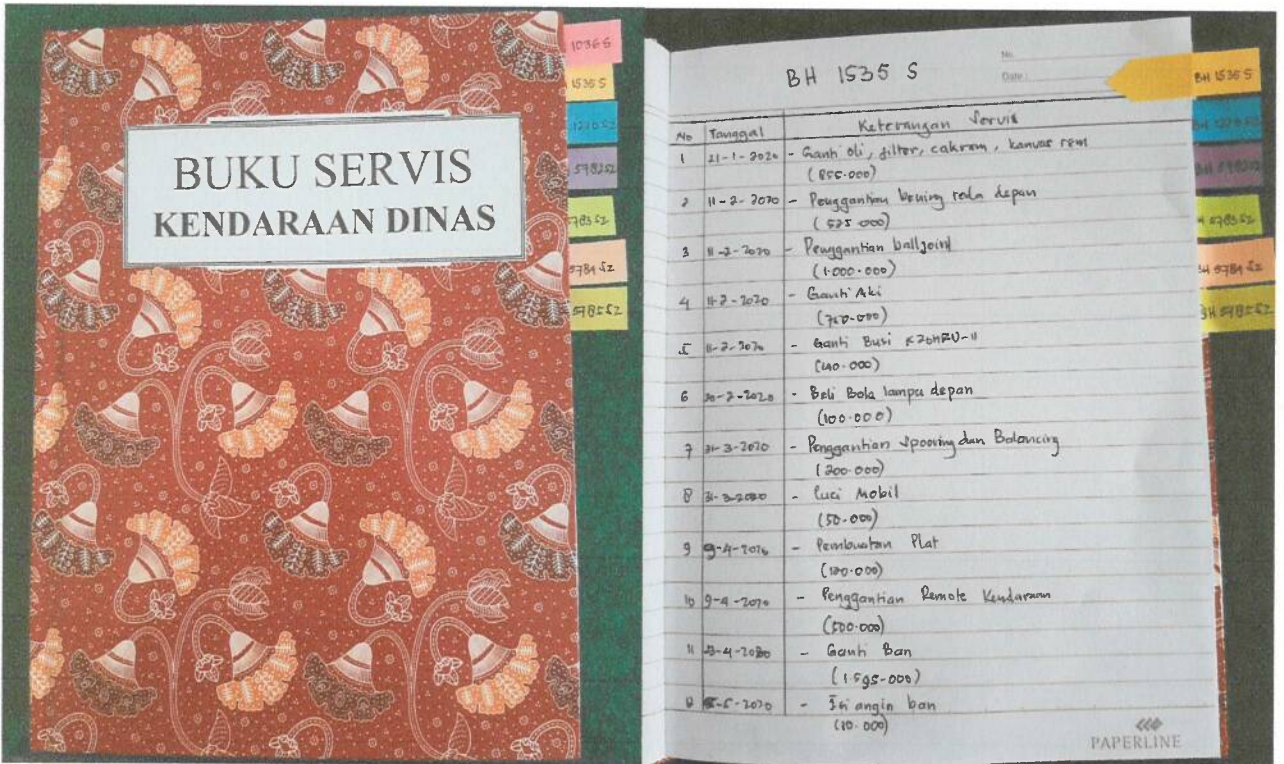 BUKU SERVIS
KENDARAAN DINAS
1036 S
1535 S
1220 SZ
5782 SZ
5783 SZ
5784 SZ
5785 SZ
No.
Date:
BH 1535 S
No Tanggal Keterangan Servis
1 21-1-2020 - Ganti oli, filter, cakram, kanvas rem
(855.000)
2 11-2-2020 - Penggantian roda depan
(525.000)
3 11-2-2020 - Penggantian balljoint
(1.000.000)
4 11-2-2020 - Ganti Aki
(750.000)
5 11-2-2020 - Ganti Busi
6 -2-2020 - Beli Bola lampu depan
(100.000)
7 31-3-2020 - Penggantian Spooring dan Balancing
(200.000)
8 31-3-2020 - Cuci Mobil
(50.000)
9 9-4-2020 - Pembuatan Plat
10 9-4-2020 - Penggantian Remote Kendaraan
(500.000)
11 -4-2020 - Ganti Ban
(1.595.000)
12 -5-2020 - Isi angin ban
(10.000)
BH 1535 S
BH 1220 SZ
BH 5782 SZ
5783 SZ
BH 5784 SZ
BH 5785 SZ
PAPERLINE